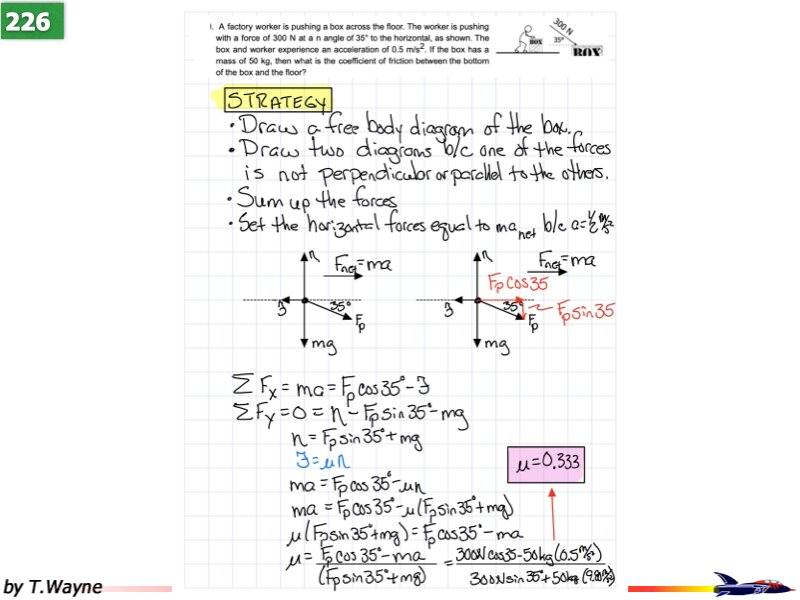 226
1. A factory worker is pushing a box across the floor. The worker is pushing
with a force of 300 N at a n angle of 35° to the horizontal, as shown. The
box and worker experience an acceleration of 0.5 m/s². If the box has a
mass of 50 kg, then what is the coefficient of friction between the bottom
of the box and the floor?
300 N
35°
BOX
BOX
STRATEGY
• Draw a free body diagram of the box.
• Draw two diagrams b/c one of the forces
is not perpendicular or parallel to the others.
• Sum up the forces
• Set the horizontal forces equal to ma net b/c a=½ m/s²
n
Fnet=ma
ℱ
35°
Fp
mg
n
Fnet=ma
Fp cos35
ℱ
35°
Fp sin35
Fp
mg
ΣFx = ma = Fp cos 35° - ℱ
ΣFy = 0 = n - Fp sin 35° - mg
n = Fp sin 35° + mg
ℱ = μn
ma = Fp cos 35° - μn
ma = Fp cos 35° - μ(Fp sin 35° + mg)
μ(Fp sin 35° + mg) = Fp cos 35° - ma
μ = Fp cos 35° - ma / (Fp sin 35° + mg) = 300N cos35 - 50kg (0.5 m/s²) / 300N sin 35° + 50kg (9.80 m/s²)
μ = 0.333
by T.Wayne